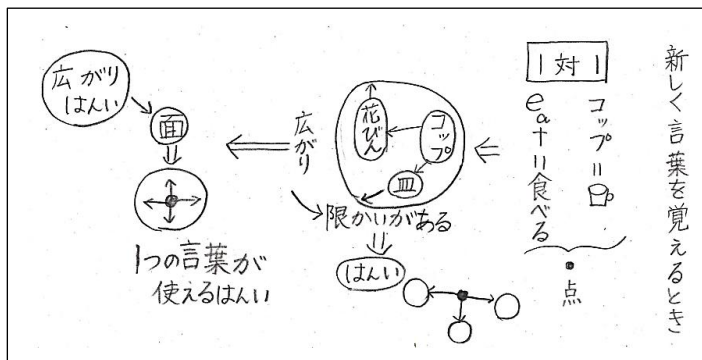 新しく言葉を覚えるとき
1対1
コップ=
eat=食べる
点
コップ
花びん
皿
広がり
限かいがある
はんい
広がり
はんい
面
1つの言葉が
使えるはんい